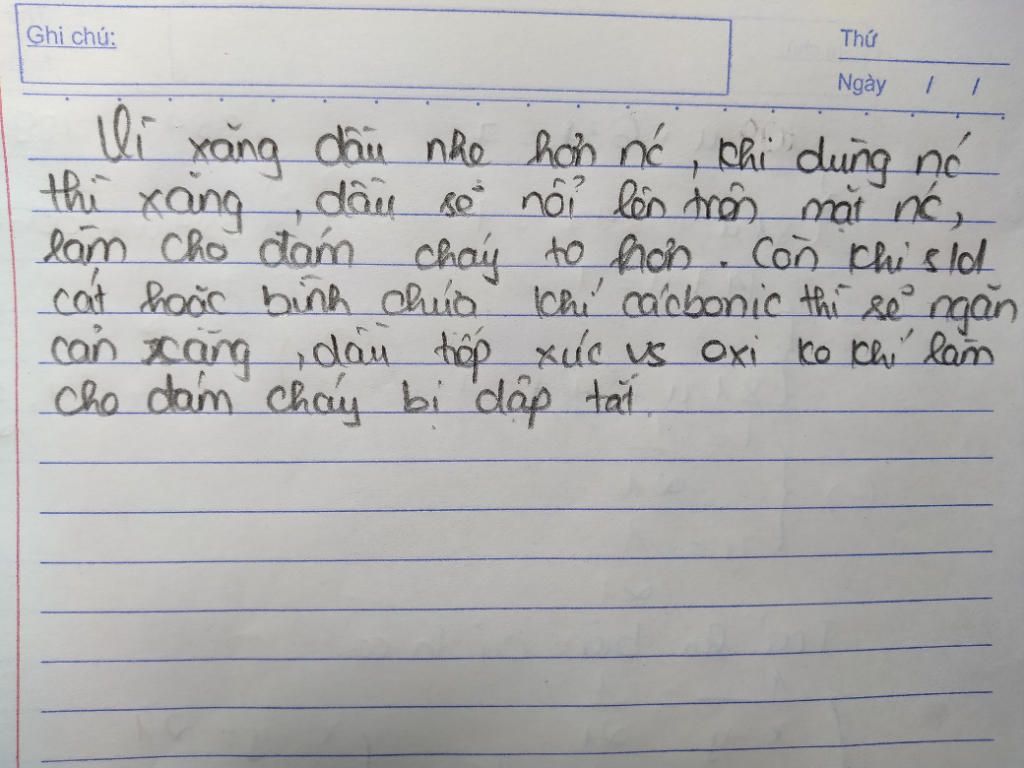 Ghi chú:
Thứ
Ngày / /
Vì xăng dầu nhẹ hơn nć, khi dùng nć
thì xăng, dầu sẽ nổi lên trên mặt nć,
làm cho đám cháy to hơn. Còn khi sld
cát hoặc bình chứa khí cácbonic thì sẽ ngăn
cản xăng, dầu tiếp xúc vs oxi ko khí làm
cho đám cháy bị dập tắt.